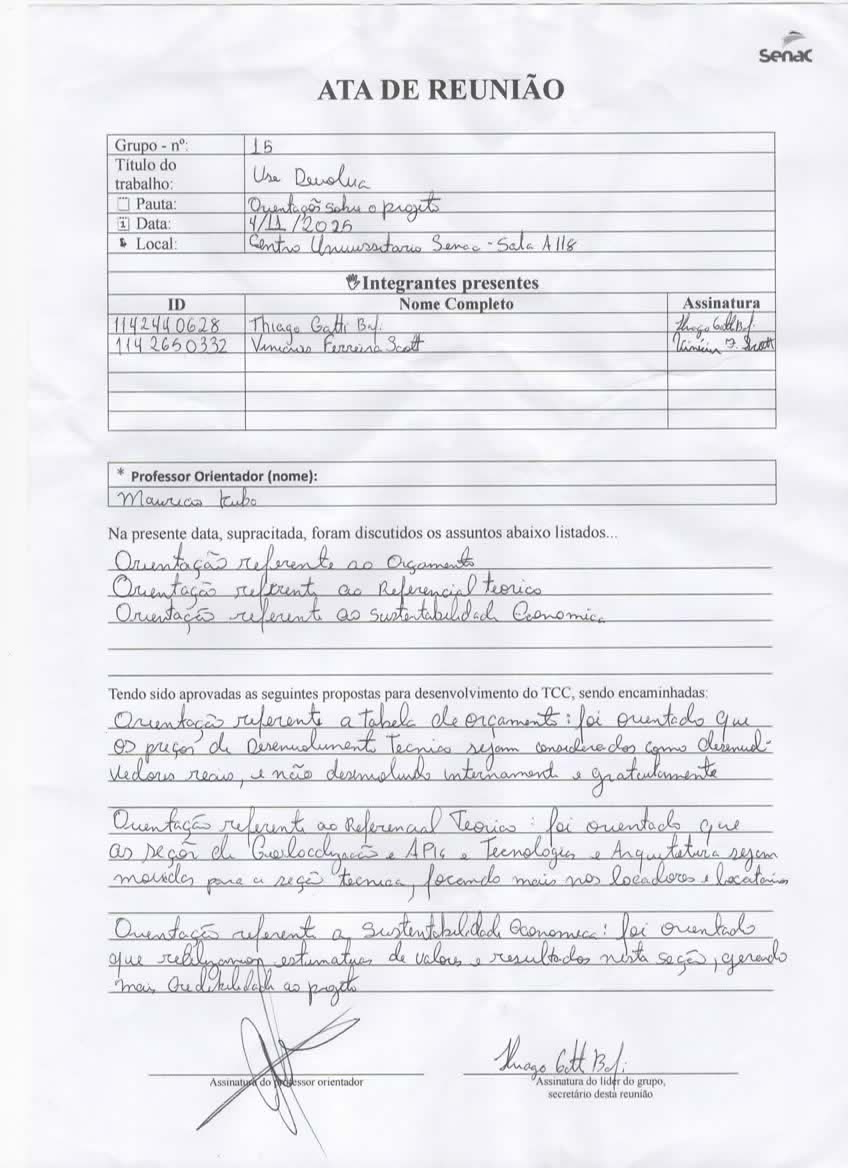 Senac
ATA DE REUNIÃO
Grupo - nº: 15
Título do trabalho: Use Devolva
Pauta: Orientação sobre o projeto
Data: 4/11/2025
Local: Centro Universitario Senac - Sala A118
Integrantes presentes
ID Nome Completo Assinatura
1142440628 Thiago Gatti Thiago Gatti
1142650332 Vinicius Ferreira Scott Vinicius F. Scott
* Professor Orientador (nome):
Mauricio Kubo
Na presente data, supracitada, foram discutidos os assuntos abaixo listados...
Orientação referente ao Orçamento
Orientação referente ao Referencial teorico
Orientação referente ao Sustentabilidade Economica
Tendo sido aprovadas as seguintes propostas para desenvolvimento do TCC, sendo encaminhadas:
Orientação referente a tabela de orçamento: foi orientado que
os preços de Desenvolvimento Tecnico sejam considerados como desenvol-
vedores reais, e não desenvolvido internamente e gratuitamente
Orientação referente ao Referencial Teorico: foi orientado que
as seções de Geolocalização e APIs e Tecnologia e Arquitetura sejam
movidas para a seção tecnica, focando mais nos locadores e locatarios
Orientação referente a Sustentabilidade Economica: foi orientado
que estimativas de valores e resultados nesta seção, gerando
mais credibilidade ao projeto
Thiago Gatti
Assinatura do professor orientador
Assinatura do líder do grupo,
secretário desta reunião